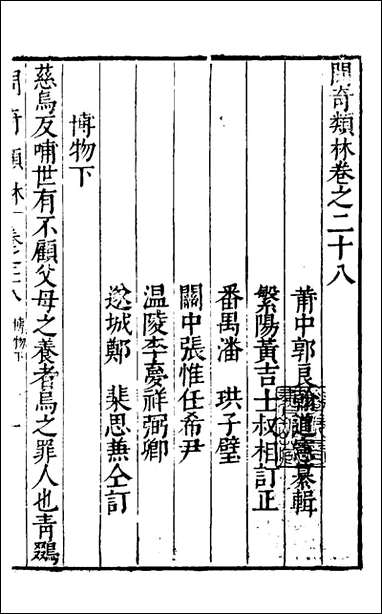 問奇類林卷之二十八
莆中郭良翰道憲纂輯
繁陽黃吉士叔相訂正
番禺潘 珙子璧
關中張惟任希尹
温陵李夢祥弼卿
遂城鄭 棐思兼仝訂
博物下
慈烏反哺世有不顧父母之養者烏之罪人也青鷄
問奇類林 卷之二八 博物下 一